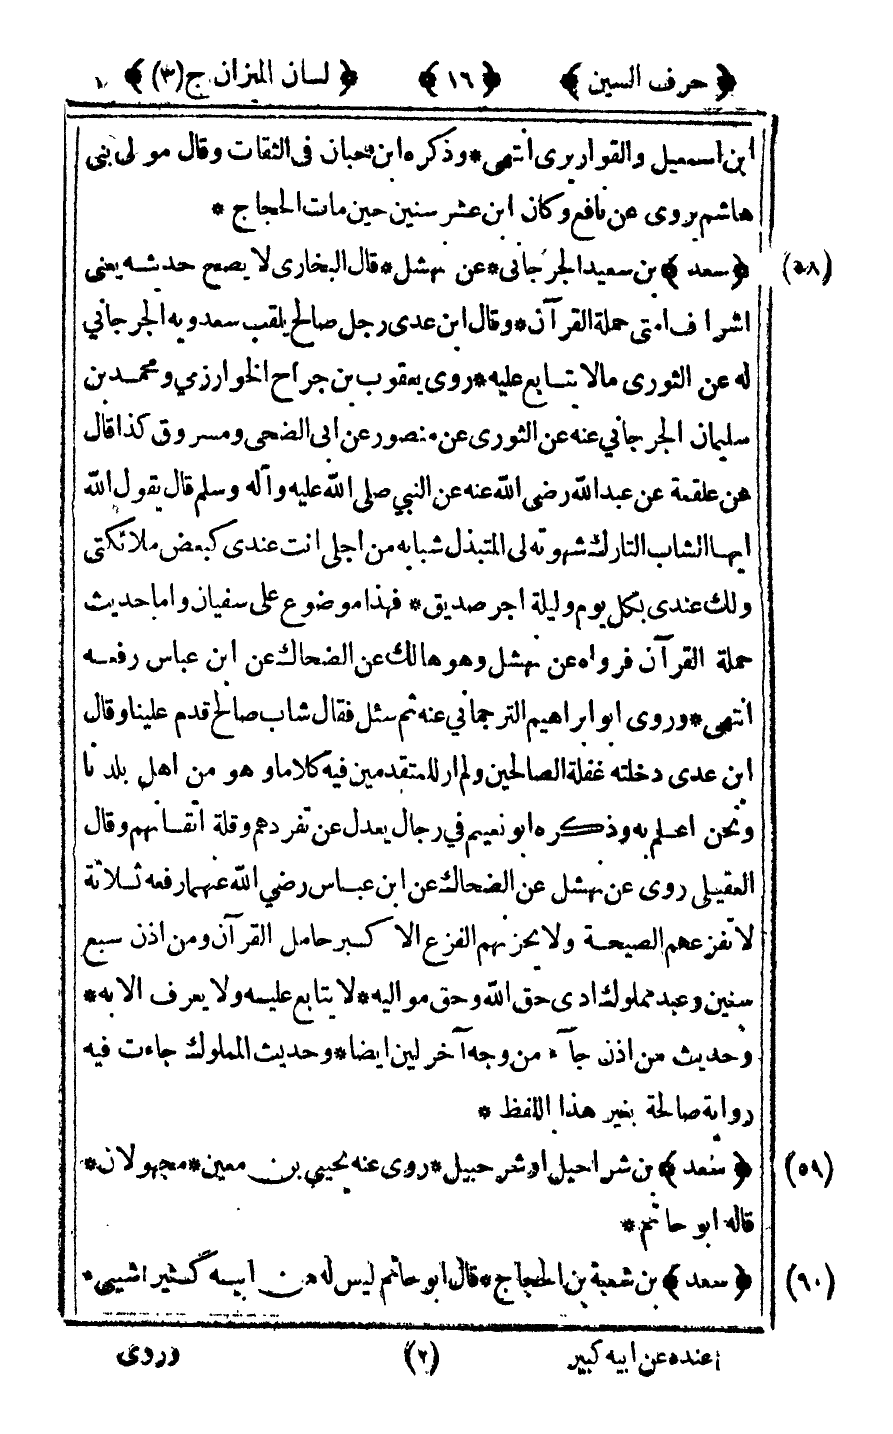 ﴿ حرف السين ﴾ ﴿ ١٦ ﴾ ﴿ لسان الميزان ج(٣) ﴾
ابن اسمعيل والقواريرى انتهى * وذكره ابن حبان فى الثقات وقال مولى بنى
هاشم يروى عن نافع وكان ابن عشر سنين حين مات الحجاج *
(٥٨) ﴿ سعد ﴾ بن سعيد الجرجانى * عن نهشل * قال البخارى لا يصح حديثه يعنى
اشراف امتى حملة القرآن * وقال ابن عدى رجل صالح يلقب سعدويه الجرجاني
له عن الثورى مالا يتابع عليه * روى يعقوب بن جراح الخوارزمي ومحمد بن
سليمان الجرجاني عنه عن الثورى عن منصور عن ابى الضحى ومسروق كذا قال
عن علقمة عن عبد الله رضى الله عنه عن النبي صلى الله عليه وآله وسلم قال يقول الله
ايها الشاب التارك شهوته لى المتبذل شبابه من اجلى انت عندى كبعض ملائكتى
ولك عندى بكل يوم وليلة اجر صديق * فهذا موضوع على سفيان واما حديث
حملة القرآن فرواه عن نهشل وهو هالك عن الضحاك عن ابن عباس رفعه
انتهى * وروى ابو ابراهيم الترجماني عنه ثم سئل فقال شاب صالح قدم علينا وقال
ابن عدى دخلته غفلة الصالحين ولم ار للمتقدمين فيه كلاما و هو من اهل بلدنا
ونحن اعلم به وذكره ابو نعيم في رجال يعدل عن تفردهم وقلة اتقانهم وقال
العقيلى روى عن نهشل عن الضحاك عن ابن عباس رضي الله عنهما رفعه ثلاثة
لا تفزعهم الصيحة ولا يحزنهم الفزع الاكبر حامل القرآن ومن اذن سبع
سنين وعبد مملوك ادى حق الله وحق مواليه * لا يتابع عليه ولا يعرف الا به *
وحديث من اذن جآء من وجه آخر لين ايضا * وحديث المملوك جاءت فيه
رواية صالحة بغير هذا اللفظ *
(٥٩) ﴿ سعد ﴾ بن شراحيل او شرحبيل * روى عنه يحيي بن معين * مجهولان *
قاله ابو حاتم *
(٦٠) ﴿ سعد ﴾ بن شعبة بن الحجاج * قال ابو حاتم ليس له عن ابيه كثير اشيى *
عنده عن ابيه كبير (٢) وروى